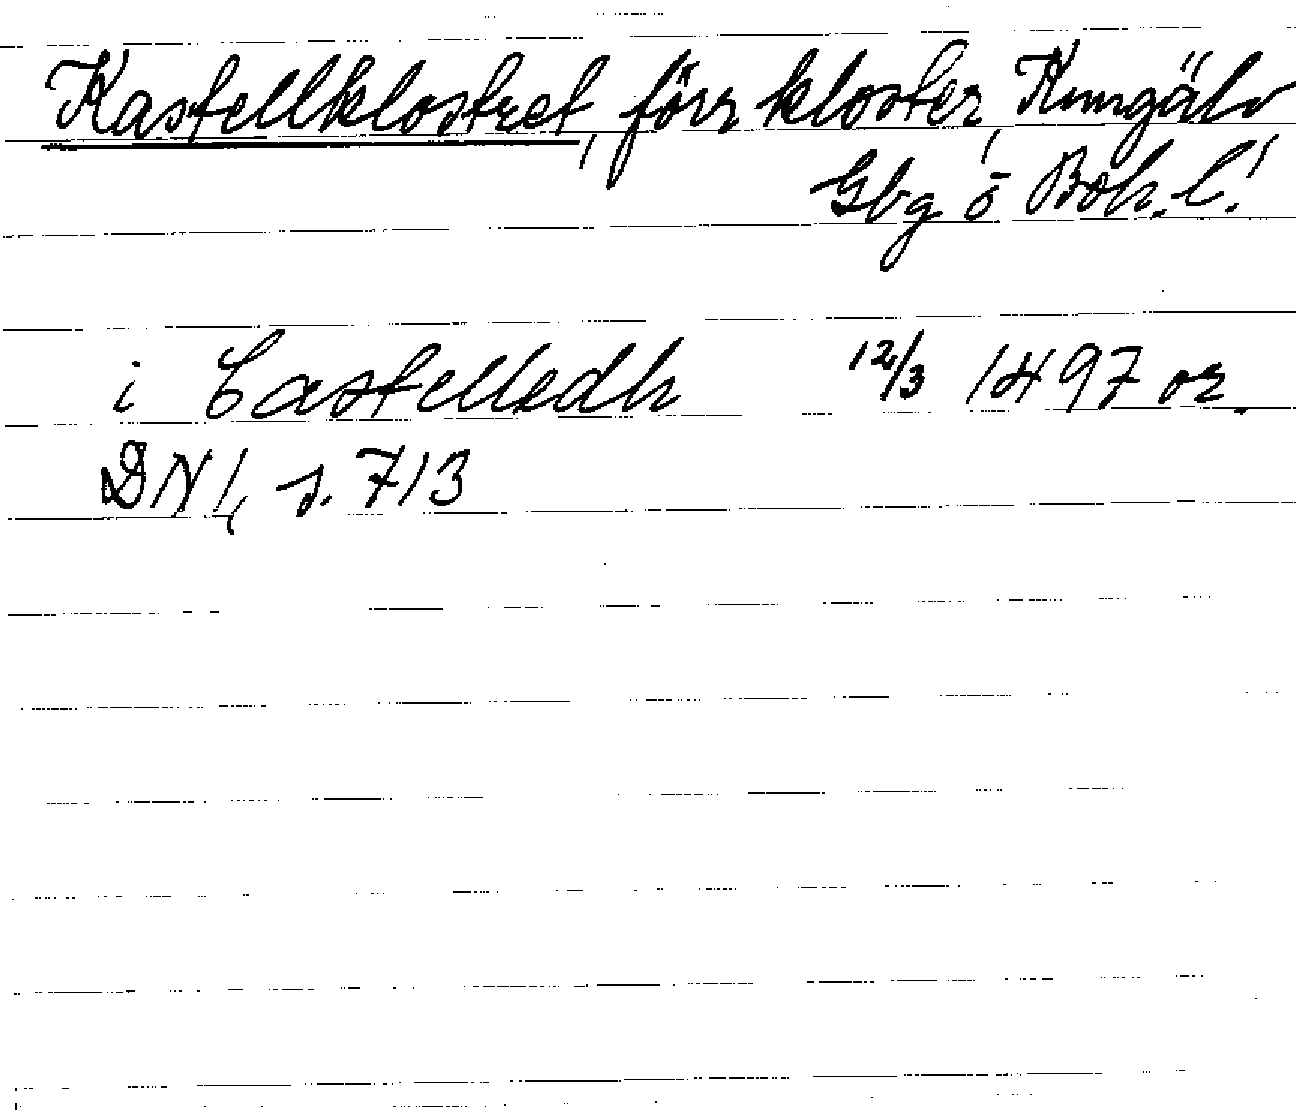 Kastellklostret, förr kloster, Kungälv
Gbg o Boh. l.!
i Castelledh 12/3 1497 or.
DN 1, s. 713